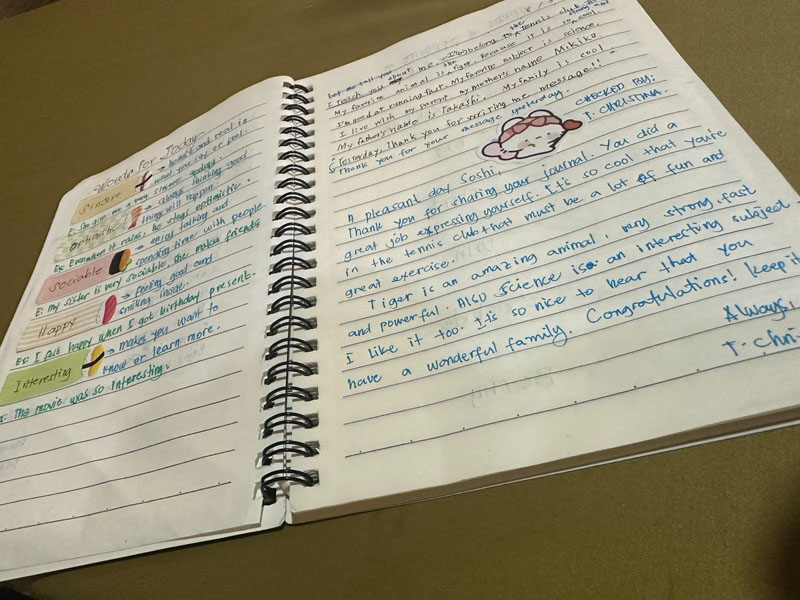 Words for Today
Sincere → honest and real in
what you say or feel.
E: She gave me a very sincere apology.
Optimistic → always thinking good
thing will happen
Ex: Even when it rains, he stays optimistic.
Sociable → enjoy talking and
spending time with people.
E: My sister is very sociable she makes friends
Happy → feeling good and
smiling inside.
Ex: I felt happy when I got birthday present.
Interesting → makes you want to
know or learn more.
Ex: The movie was so interesting.
Let me tell you about me. I'm belong to the tennis club
I teach you
My favorite animal is the tiger because it is so strong and cool.
I'm good at running fast. My favorite subject is science.
I live with my parent, my mother's name Mikiko
My father's name is Takashi. My family is cool
Yesterday, Thank you for writing me message!!
Thank you for your message yesterday.
CHECKED BY:
T. CHRISTINA
A pleasant day Soshi,
Thank you for sharing your journal. You did a
great job expressing yourself. It's so cool that you're
in the tennis club that must be a lot of fun and
great exercise.
Tiger is an amazing animal, very strong, fast
and powerful. Also Science is an interesting subject.
I like it too. It's so nice to hear that you
have a wonderful family. Congratulations! Keep it
Always,
T. Chri